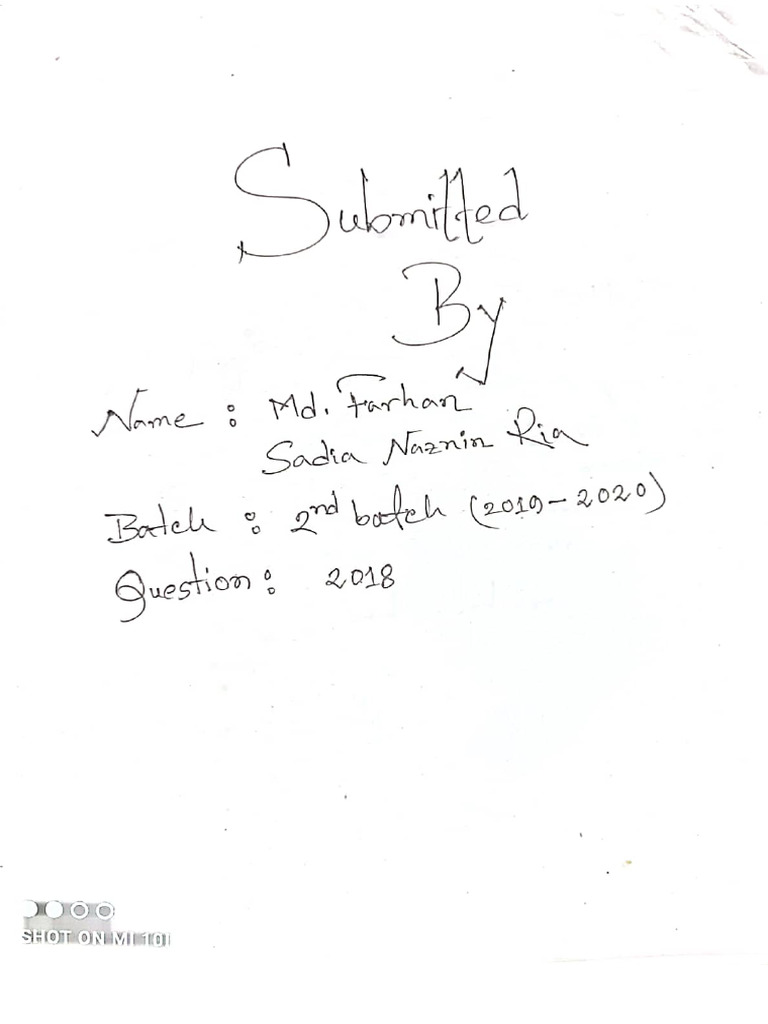 Submitted
By
Name : Md. Farhan
Sadia Naznin Ria
Batch : 2nd batch (2019-2020)
Question : 2018
SHOT ON MI 10I